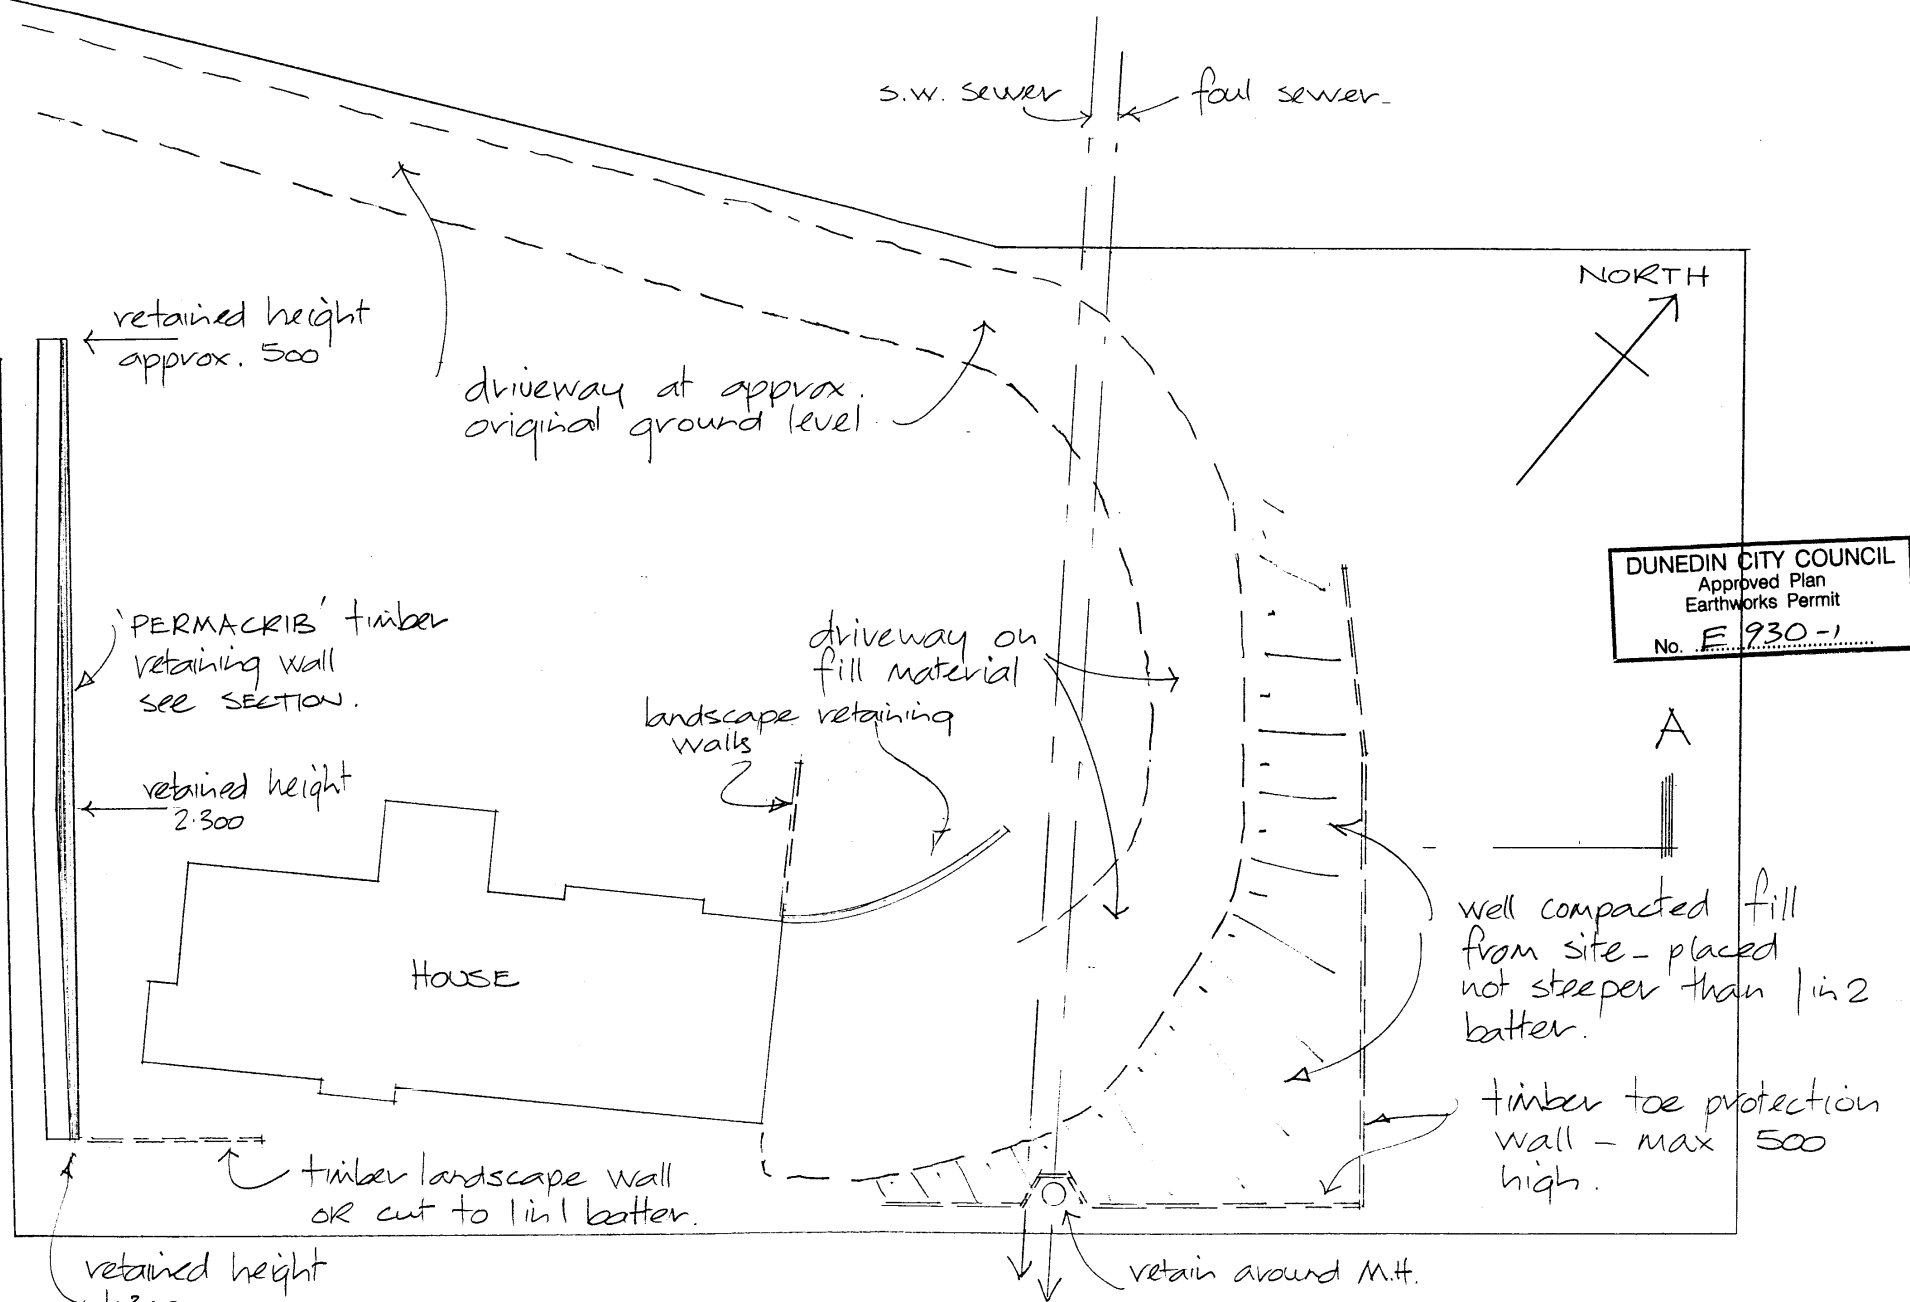 s.w. sewer
foul sewer
NORTH
retained height
approx. 500
driveway at approx.
original ground level
DUNEDIN CITY COUNCIL
Approved Plan
Earthworks Permit
No. E 930-1
'PERMACRIB' timber
retaining wall
see SECTION.
driveway on
fill material
landscape retaining
walls
A
retained height
2.300
HOUSE
well compacted fill
from site - placed
not steeper than 1 in 2
batter.
timber toe protection
wall - max 500
high.
timber landscape wall
OR cut to 1 in 1 batter.
retained height
retain around M.H.